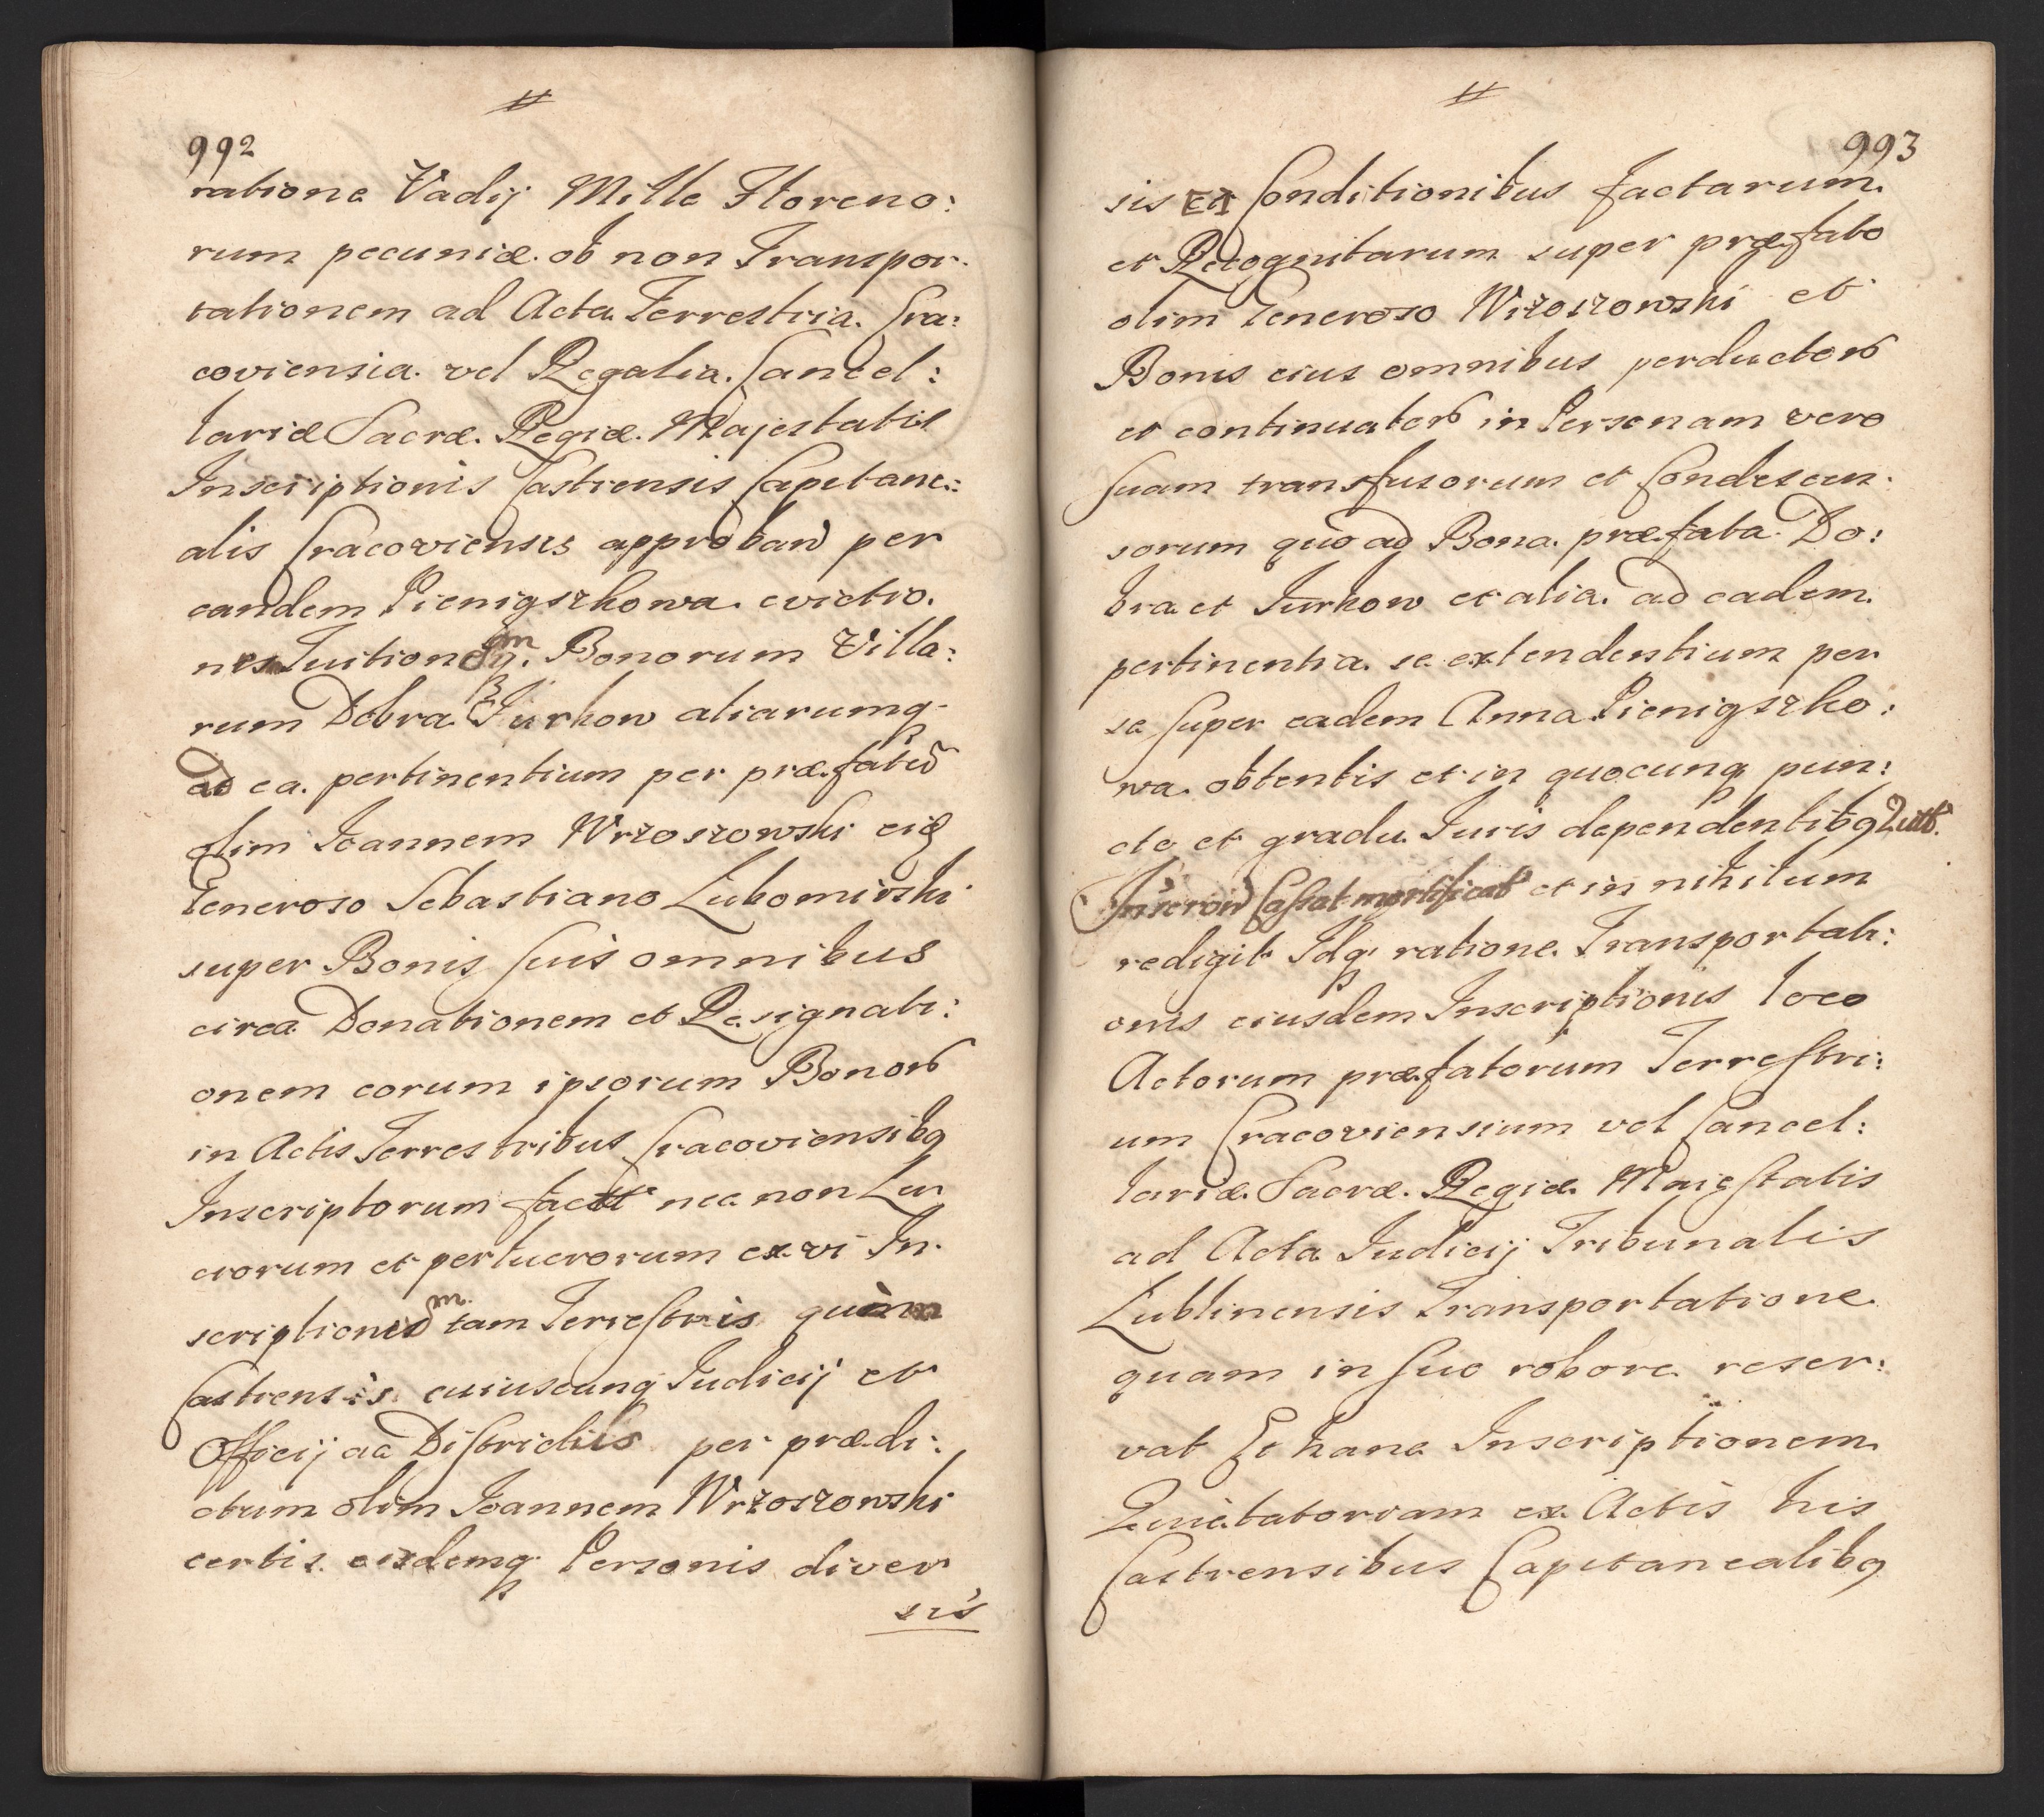 992
ratione Vadij Mille Floreno:
rum pecuniæ ob non Transpor-
tationem ad Acta Terrestria Cra:
coviensia vel Regalia Cancel:
lariæ Sacræ Regiæ Majestatis
Inscriptionis Castrensis Capitane:
alis Cracoviensis approban per
eandem Pieniąszkowa evictio.
nis Tuitionem Bonorum Villa:
rum Dobra Jurkow aliarumq
ad ea pertinentium per præfatu
olim Joannem Wrzoszowski eiq
Generoso Sebastiano Lubomirski
super Bonis suis omnibus
circa Donationem et Resignati:
onem eorum ipsorum Bonor
in Actis Terrestribus Cracoviensibq
Inscriptorum fact nec non Lu
crorum et perlucrorum ex vi In-
scriptionem tam Terrestris quam
Castrensis cuiuscunq Judicij et
Officij ac Districtus per prædi:
ctum olim Joannem Wrzoszowski
certis eisdemq Personis diver
sis
993
sis Et Conditionibus factarum
et Recognitarum super præfato
olim Generoso Wrzoszowski et
Bonis eius omnibus perductor
et continuator in Personam vero
suam transfusorum et Condescen-
sorum quo ad Bona præfata Do:
bra et Jurkow et alia ad eadem
pertinentia se extendentium per
se super eadem Anna Pieniąszko:
wa obtentis et in quocunq pun:
cto et gradu Juris dependentibq Quit.
Inscron Cassat mortificat et in nihilum
redigit Idq ratione Transportati:
onis eiusdem Inscriptionis loco
Actorum præfatorum Terrestri:
um Cracoviensium vel Cancel:
lariæ Sacræ Regiæ Maiestatis
ad Acta Judicij Tribunalis
Lublinensis Transportatione
quam in suo robore reser:
vat Et hanc Inscriptionem
Quietatoriam ex Actis his
Castrensibus Capitanealibq